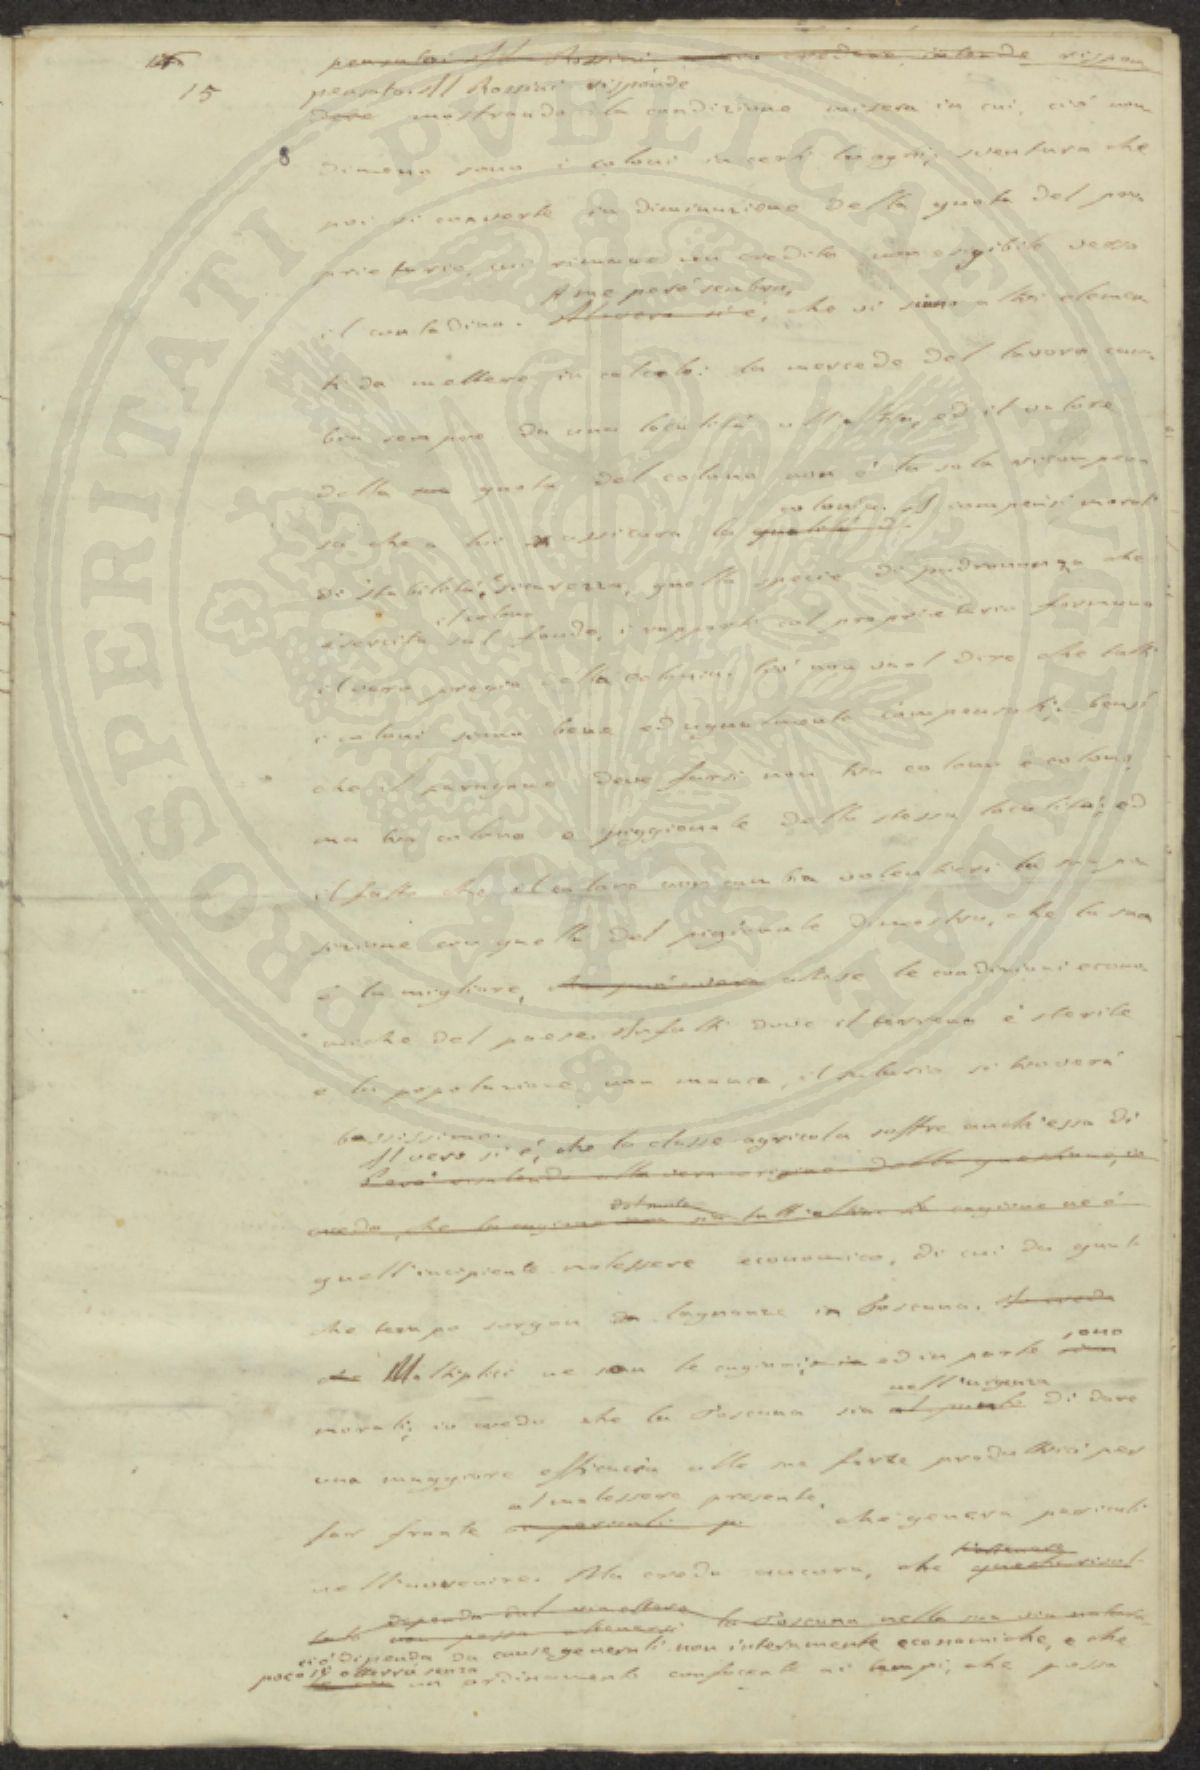 15
pensatori. Il Rossini risponde
mostrando la condizione misera in cui, ciò non
8
dimeno sono i coloni in certi luoghi; sventura che
poi si converte in diminuzione della quota del pro-
prietario, cui rimane un credito inesigibile verso
A me però sembra,
il contadino. che vi siano altri elemen
ti da mettere in calcolo: la mercede del lavoro cam-
bia sempre da una località all'altra, ed il valore
della quota del colono non è la sola ricompen
colonia. I compensi morali
sa che a lui assicura la
di stabilità, sicurezza, quella specie di padronanza che
il colono
esercita sul fondo, i rapporti col proprietario formano
il vero pregio della colonia. Ciò non vuol dire che tutti
i coloni siano bene ed egualmente compensati; bensì
che il paragone deve farsi non tra colono e colono,
ma tra colono e piggionale della stessa località; ed
il fatto che il colono non cambia volentieri la sua po
sizione con quella del pigionale dimostra, che la sua
è la migliore, attese le condizioni econo-
miche del paese. Infatti dove il terreno è sterile
e la popolazione non manca, il salario si troverà
bassissimo.
Il vero si è, che la classe agricola soffre anch'essa di
quell'incipiente malessere economico, di cui da qual
che tempo sorgon lagnanze in Toscana.
Moltiplici ne son le cagioni, ed in parte sono
nell'urgenza
morali; io credo che la Toscana sia di dare
una maggiore efficacia alle sue forze produttrici per
al malessere presente,
far fronte che genera pericoli
nell'avvenire. Ma credo ancora, che
ciò dipenda da cause generali non interamente economiche, e che
poco si otterrà senza
un ordinamento confacente ai tempi, che possa